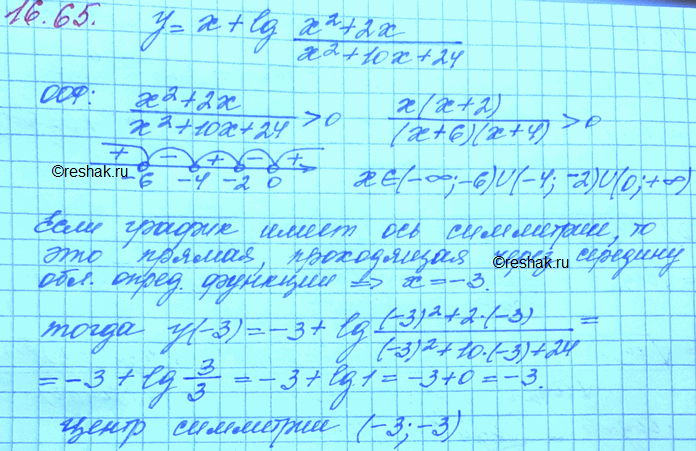 16.65.
y = x + lg (x²+2x)/(x²+10x+24)
ООФ: (x²+2x)/(x²+10x+24) > 0 x(x+2)/((x+6)(x+4)) > 0
+ − + − +
©reshak.ru
-6 -4 -2 0 x∈(-∞;-6)∪(-4;-2)∪(0;+∞)
Если график имеет ось симметрии, то
это прямая, проходящая через середину
©reshak.ru
обл. опред. функции => x=-3.
тогда y(-3) = -3 + lg ((-3)²+2·(-3))/((-3)²+10·(-3)+24) =
= -3 + lg 3/3 = -3 + lg 1 = -3+0 = -3.
Центр симметрии (-3;-3)